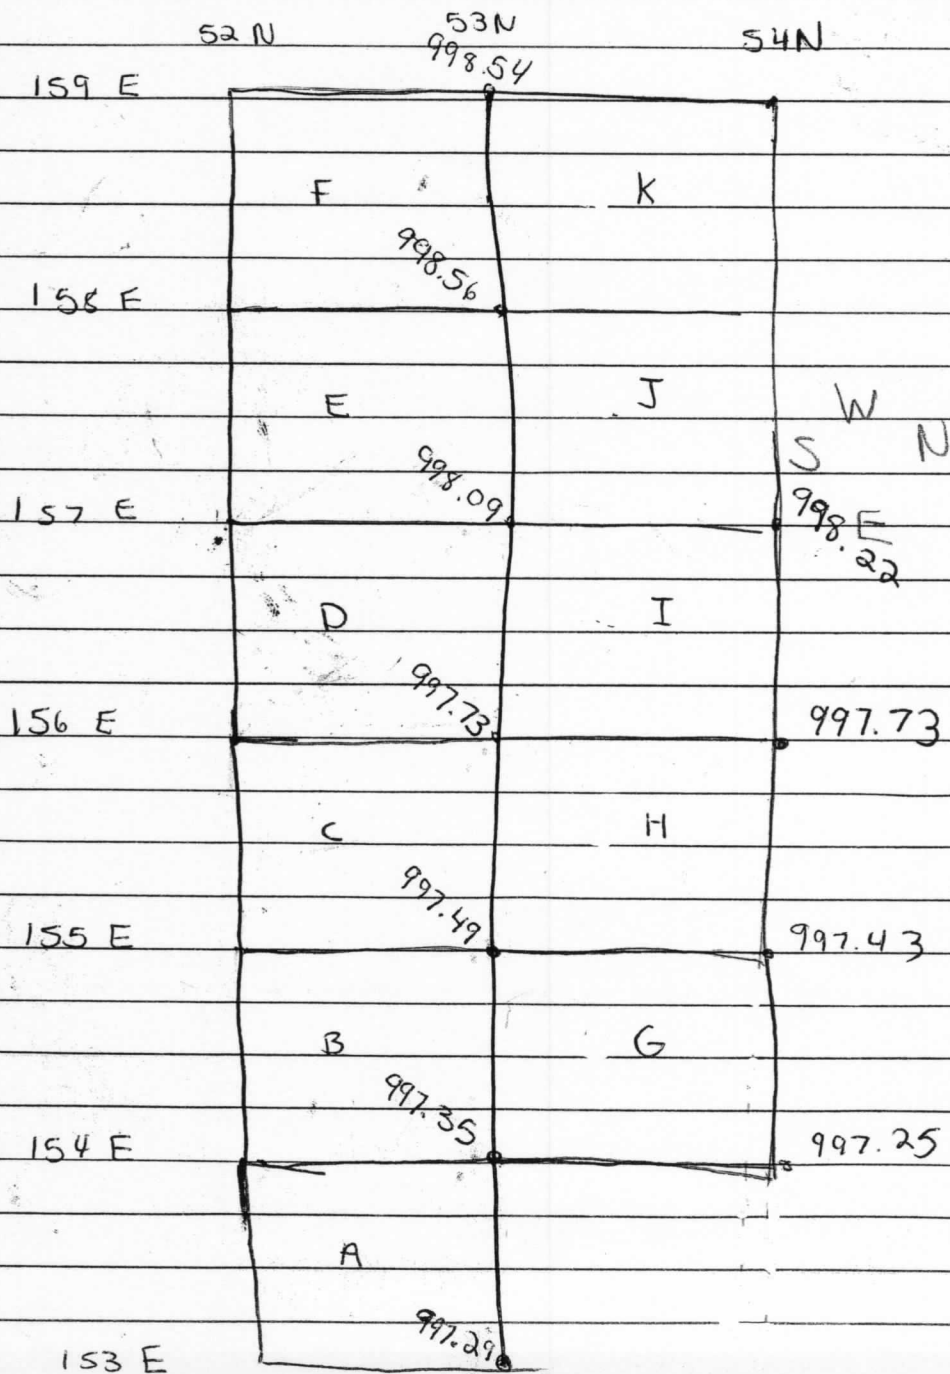 52 N 53N 54N
998.54
159 E
F K
998.56
158 E
E J W
998.09 S N
157 E 998.22 E
D I
997.73 997.73
156 E
C H
997.49
155 E 997.43
B G
997.35
154 E 997.25
A
997.29
153 E